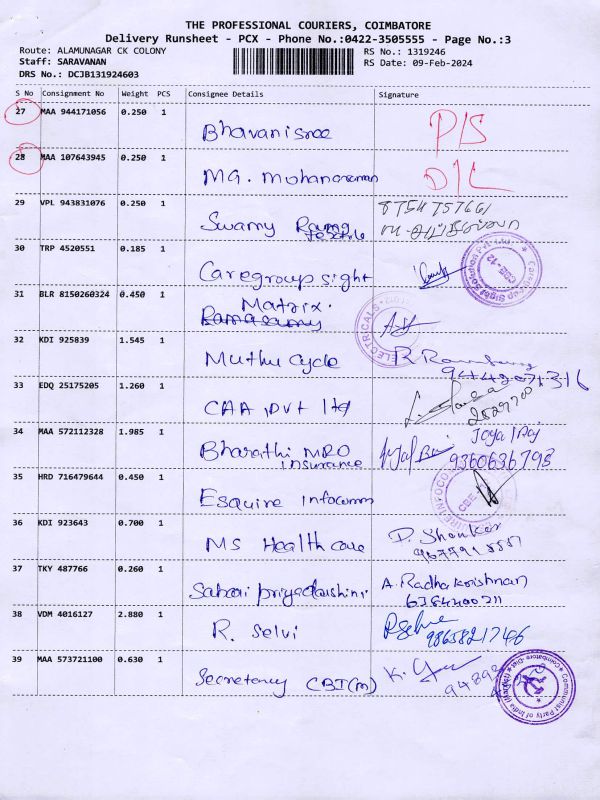 THE PROFESSIONAL COURIERS, COIMBATORE
Delivery Runsheet - PCX - Phone No.:0422-3505555 - Page No.:3
Route: ALAMUNAGAR CK COLONY RS No.: 1319246
Staff: SARAVANAN RS Date: 09-Feb-2024
DRS No.: DCJB131924603
S No Consignment No Weight PCS Consignee Details Signature
27 MAA 944171056 0.250 1 Bhavanisree P/S
28 MAA 107643945 0.250 1 MG. Mohanaraman D/L
29 VPL 943831076 0.250 1 Swamy Textile 8754757661
30 TRP 4520551 0.185 1 Caregroup sight
31 BLR 8150260324 0.450 1 Matrix. Ramasamy
ELECTRICALS
32 KDI 925839 1.545 1 Muthu Cycle
33 EDQ 25175205 1.260 1 CAA pvt ltd
34 MAA 572112328 1.985 1 Bharathi MRO
insurance 9360636793
35 HRD 716479644 0.450 1 Esquire Infocomm
36 KDI 923643 0.700 1 MS Health care D. Shanker
37 TKY 487766 0.260 1 Sabari priyadarshini A. Radhakrishnan
6384400711
38 VDM 4016127 2.880 1 R. Selvi 9865821746
39 MAA 573721100 0.630 1 Secretency CBI(m) K.
Communist Party of India (Marxist)